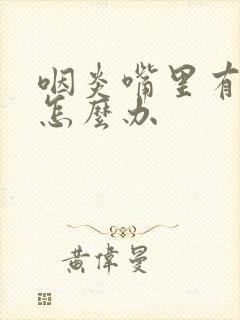 咽炎嘴里有
怎麼办
黄偉曼